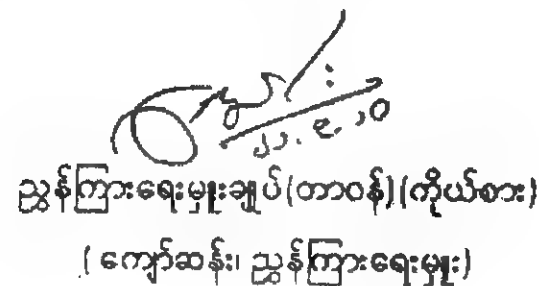 ၂၁.၉.၁၀
ညွှန်ကြားရေးမှူးချုပ်(တာဝန်)(ကိုယ်စား)
(ကျော်ဆန်း၊ ညွှန်ကြားရေးမှူး)